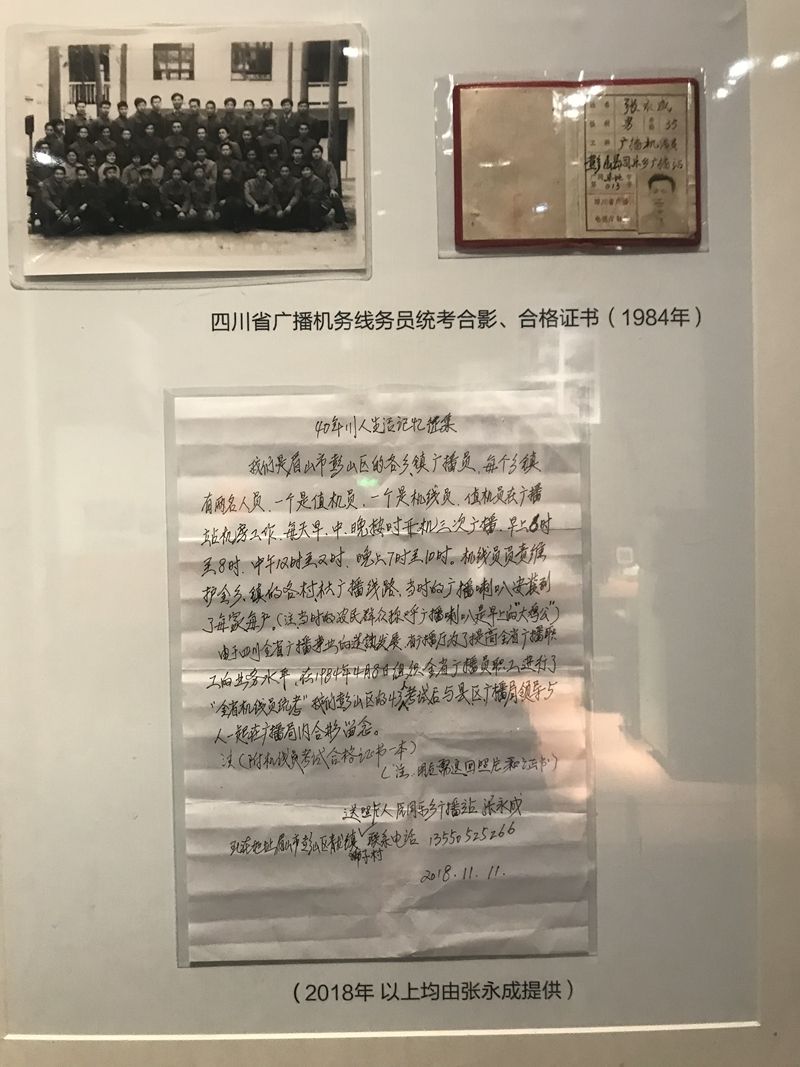 姓名 张永成
性别 男 年龄 35
工种 广播机线员
彭山县同乐乡广播站
第 013 号
四川省广播
电视厅制
四川省广播机务线务员统考合影、合格证书（1984年）
40年川人生活记忆征集
我们是眉山市彭山区的各乡镇广播员，每个乡镇
有两名人员，一个是值机员，一个是机线员，值机员在广播
站机房工作，每天早、中、晚按时开机三次广播，早上6时
至8时，中午12时至2时，晚上7时至10时。机线员负责维
护全乡、镇的各村社广播线路，当时的广播喇叭安装到
了每家每户。（注当时的农民群众称呼广播喇叭是早上的“大鸡公”）
由于四川全省广播事业的逐级发展，省广播厅为了提高全省广播职
工的业务水平，在1984年4月8日组织全省广播员职工进行了
“全省机线员统考”我们彭山区的45名考试后与县区广播局领导5
人一起在广播局内合影留念。
注（附机线员考试合格证书一本）
（注：用后需退回照片和证书）
送照片人 原同乐乡广播站 张永成
现在地址眉山市彭山区青龙镇 联系电话 13550525266
狮子村
2018.11.11.
（2018年 以上均由张永成提供）